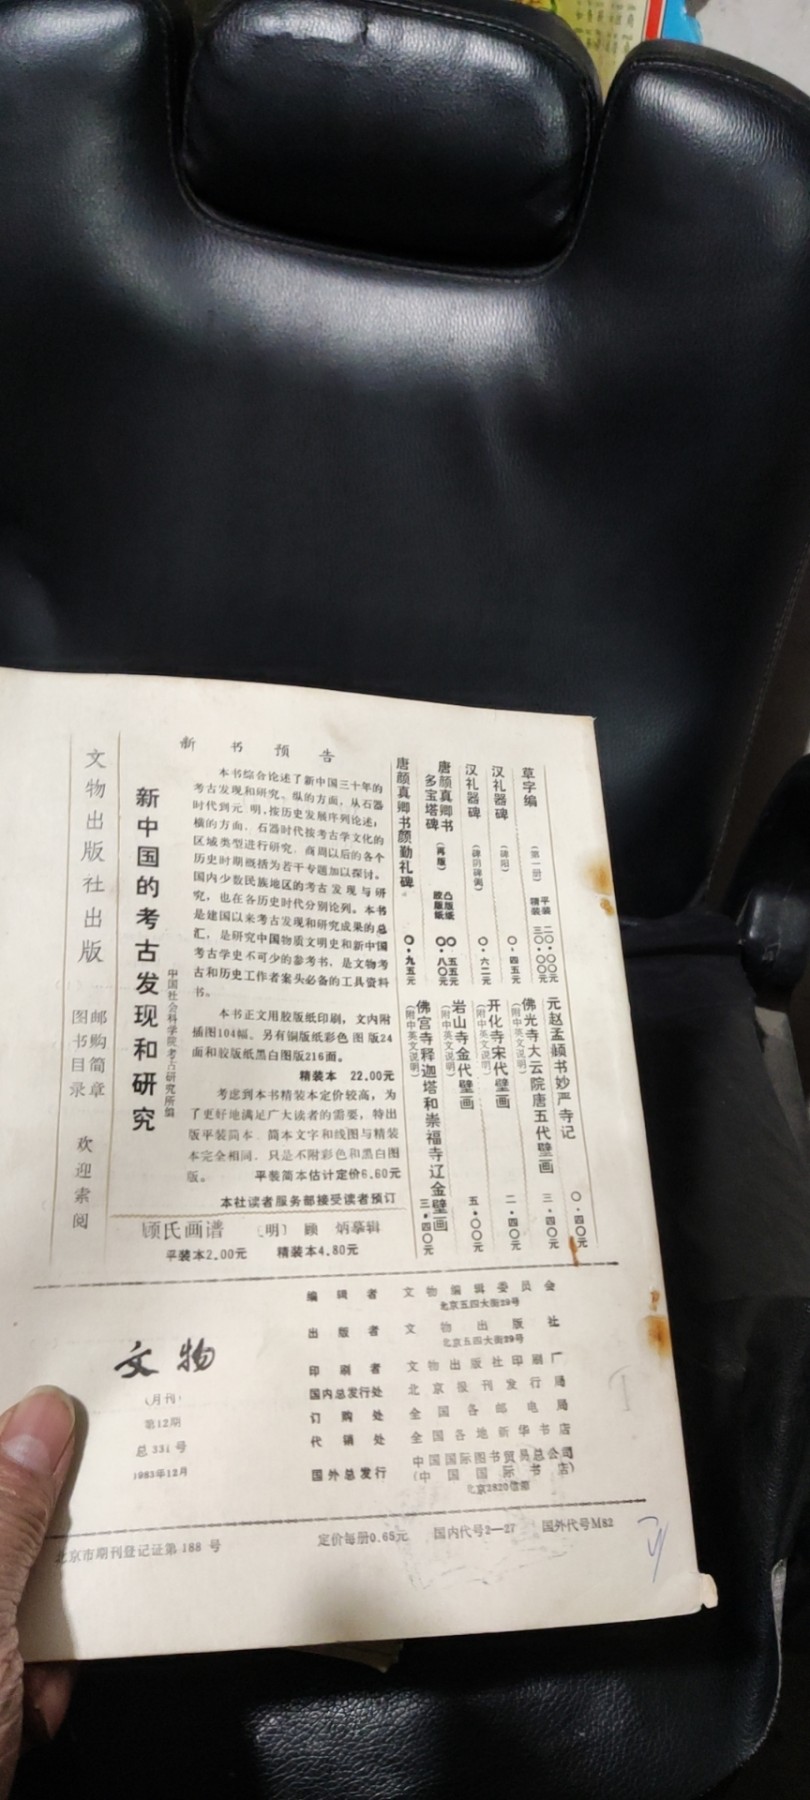 文物出版社出版
图书目录
邮购简章
欢迎索阅
新书预告
新中国的考古发现和研究
中国社会科学院考古研究所编
本书综合论述了新中国三十年的
考古发现和研究。纵的方面，从石器
时代到元、明，按历史发展序列论述，
横的方面，石器时代按考古学文化的
区域类型进行研究，商周以后的各个
历史时期概括为若干专题加以探讨。
国内少数民族地区的考古发现与研
究，也在各历史时代分别论列。本书
是建国以来考古发现和研究成果的总
汇，是研究中国物质文明史和新中国
考古学史不可少的参考书，是文物考
古和历史工作者案头必备的工具资料
书。
本书正文用胶版纸印刷，文内附
插图104幅。另有铜版纸彩色图版24
面和胶版纸黑白图版216面。
精装本 22.00元
考虑到本书精装本定价较高，为
了更好地满足广大读者的需要，特出
版平装简本。简本文字和线图与精装
本完全相同，只是不附彩色和黑白图
版。 平装简本估计定价6.60元
本社读者服务部接受读者预订
顾氏画谱 〔明〕 顾 炳摹辑
平装本2.00元 精装本4.80元
草字编 （第一册） 平装 二〇·〇〇元
精装 三〇·〇〇元
汉礼器碑 （碑阳） 〇·四五元
汉礼器碑 （碑阴碑侧） 〇·六二元
唐颜真卿书多宝塔碑 （再版） 凸版纸 〇·五五元
胶版纸 〇·八〇元
唐颜真卿书颜勤礼碑 〇·九五元
元赵孟頫书妙严寺记 〇·四〇元
佛光寺大云院唐五代壁画 三·四〇元
（附中英文说明）
开化寺宋代壁画 二·四〇元
（附中英文说明）
岩山寺金代壁画 五·〇〇元
（附中英文说明）
佛宫寺释迦塔和崇福寺辽金壁画 三·四〇元
（附中英文说明）
文物
（月刊）
第12期
总331号
1983年12月
编辑者 文物编辑委员会
北京五四大街29号
出版者 文物出版社
北京五四大街29号
印刷者 文物出版社印刷厂
国内总发行处 北京报刊发行局
订购处 全国各邮电局
代销处 全国各地新华书店
国外总发行 中国国际图书贸易总公司
（中国国际书店）
北京2820信箱
北京市期刊登记证第188号 定价每册0.65元 国内代号2—27 国外代号M82